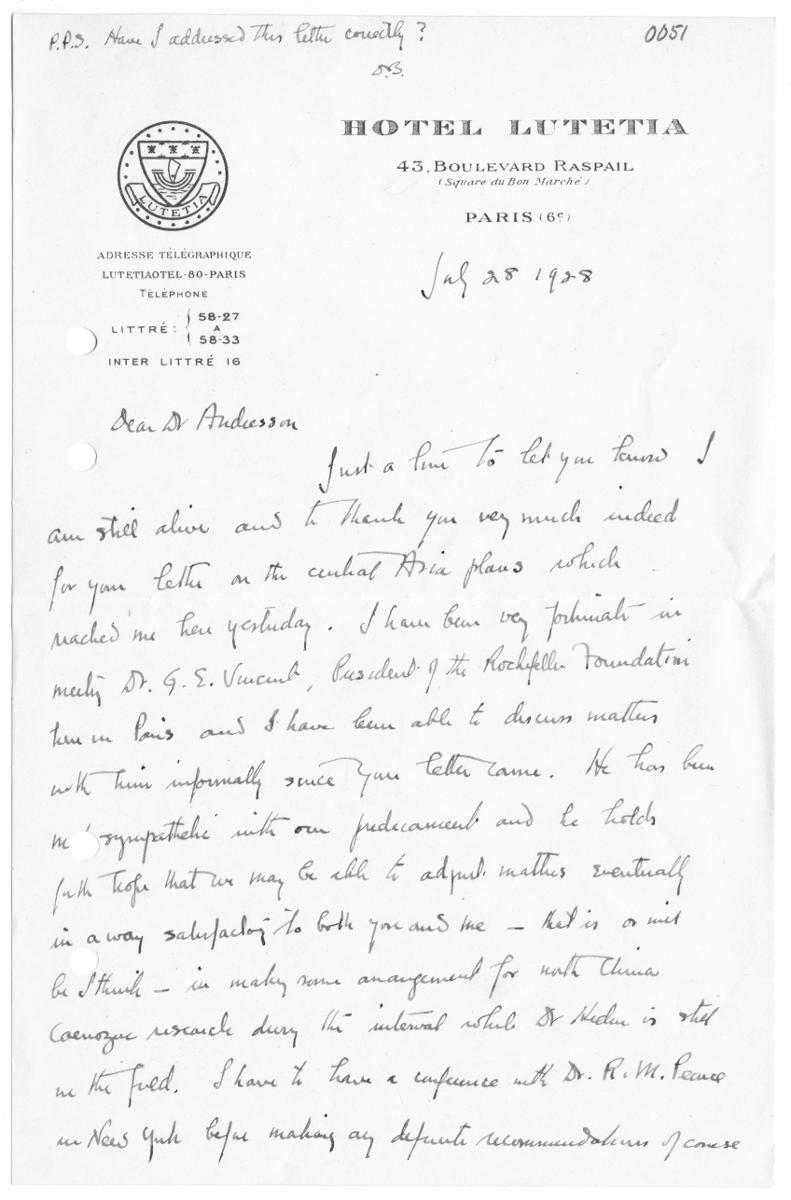 P.P.S. Have I addressed this letter correctly?
D.B.
0051
HOTEL LUTETIA
43, BOULEVARD RASPAIL
(Square du Bon Marché)
PARIS (6e)
LUTETIA
ADRESSE TÉLÉGRAPHIQUE
LUTETIAOTEL-80-PARIS
TÉLÉPHONE
LITTRÉ: 58-27
A
58-33
INTER LITTRÉ 16
July 28 1928
Dear Dr Andersson
Just a line to let you know I
am still alive and to thank you very much indeed
for your letter on the central Asia plans which
reached me here yesterday. I have been very fortunate in
meeting Dr. G. E. Vincent, President of the Rockefeller Foundation
here in Paris and I have been able to discuss matters
with him informally since your letter came. He has been
sympathetic with our predicament and he holds
forth hope that we may be able to adjust matters eventually
in a way satisfactory to both you and me – that is or will
be I think – in making some arrangement for north China
Caenozoic research during the interval while Dr Hedin is still
in the field. I have to have a conference with Dr. R. M. Pearce
in New York before making any definite recommendations of course